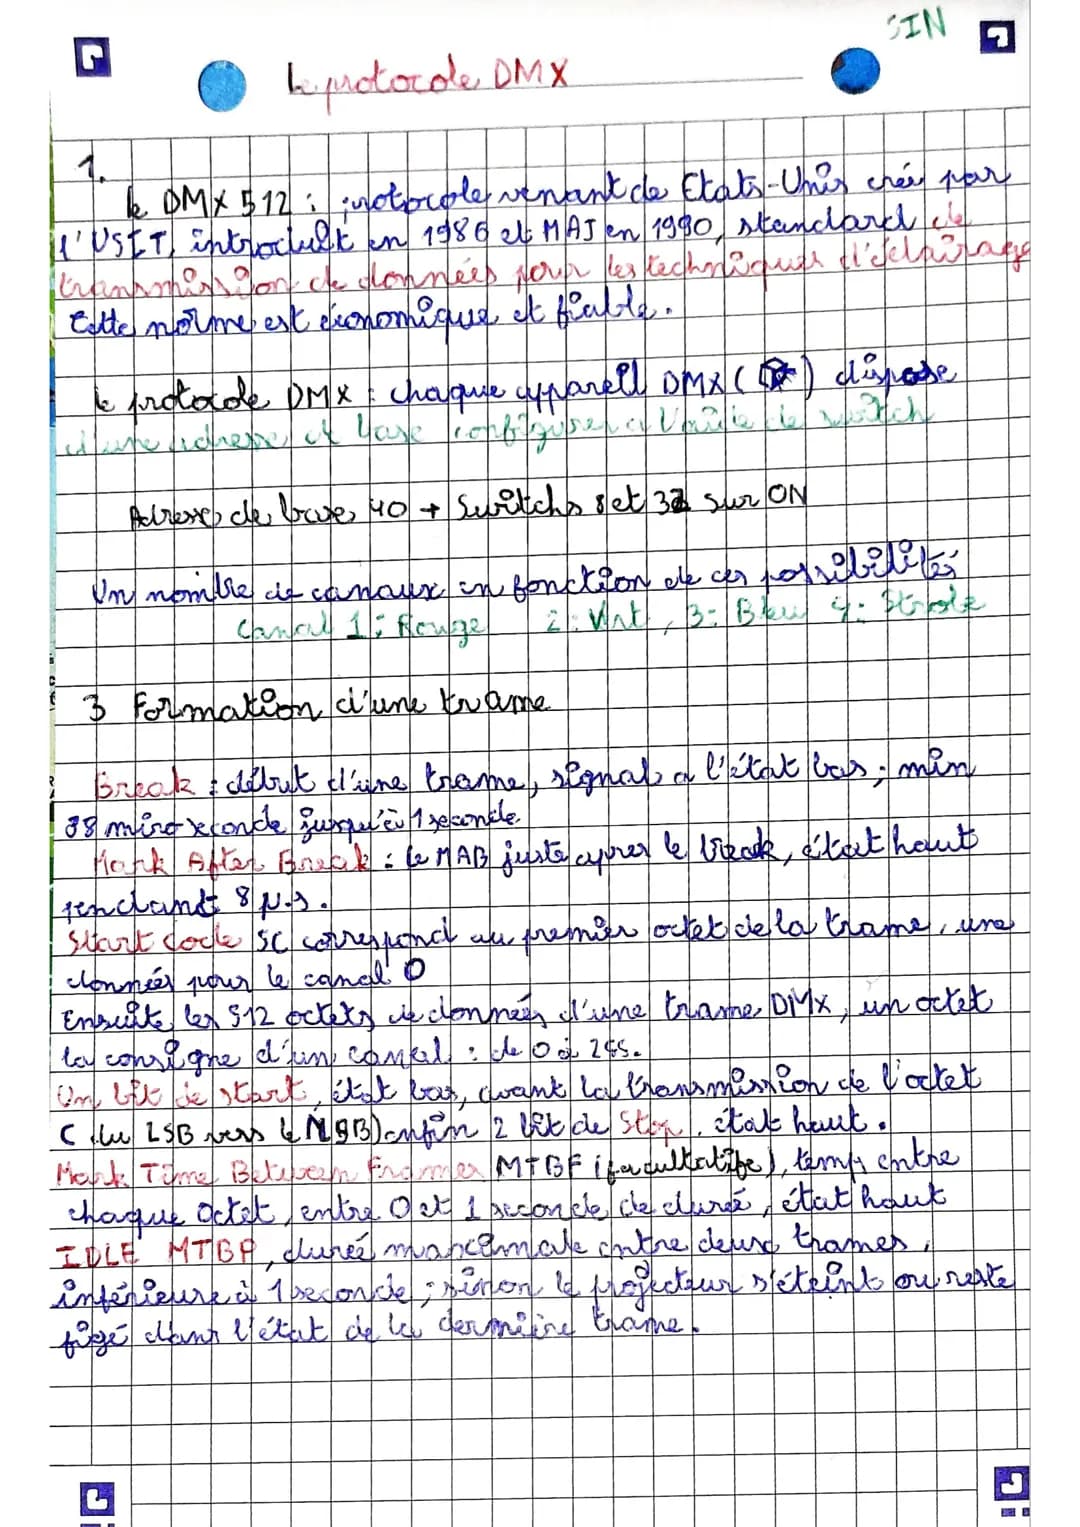 SIN
Le protocole DMX
1.
le DMX 512 : protocole venant de Etats-Unis crée par
l'USIT, introduit en 1986 et MAJ en 1990, standard de
transmission de données pour les techniques d'éclairage
Cette norme est économique et fiable.
le protocole DMX : chaque appareil DMX ( ) dispose
d'une adresse de base configurer a l'aide de switch
Adresse de base 40 → Switchs 8 et 32 sur ON
Un nombre de canaux en fonction de ces possibilités
Canal 1 : Rouge 2 : Vert, 3 : Bleu 4 : Strobe
3 Formation d'une trame
Break : début d'une trame, signal a l'état bas ; min
88 micro seconde jusqu'à 1 seconde
Mark After Break : le MAB juste apres le break, état haut
pendant 8 µ.s.
Start Code SC correspond au premier octet de la trame, une
données pour le canal 0
Ensuite les 512 octets de données d'une trame DMX, un octet
la consigne d'un canal : de 0 à 255.
Un bit de start, état bas, avant la transmission de l'octet
( du LSB vers le MSB) enfin 2 bit de Stop, état haut.
Mark Time Between Frames MTBF (facultatife), temps entre
chaque Octet, entre 0 et 1 seconde de durée, état haut
IDLE MTBP, durée maximale entre deux trames,
inférieure à 1 seconde ; sinon le projecteur s'éteint ou reste
figé dans l'état de la dernière trame.